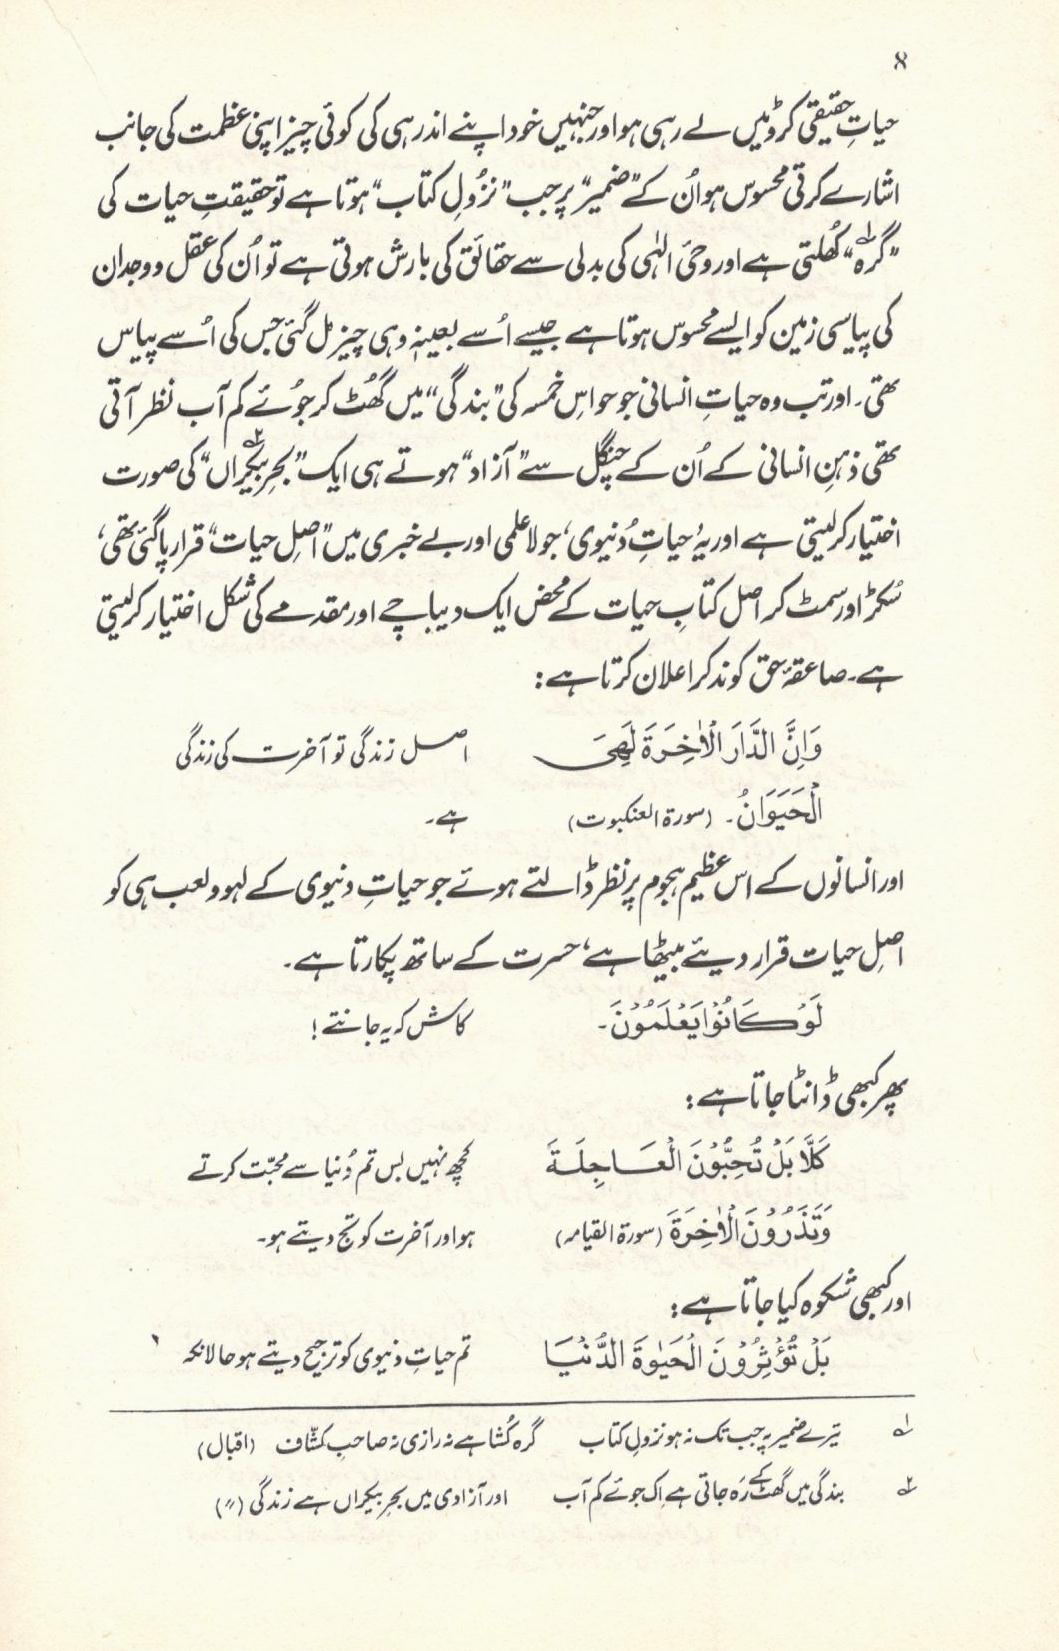 ۸
حیاتِ حقیقی کروٹیں لے رہی ہو اور جنہیں خود اپنے اندر ہی کی کوئی چیز اپنی عظمت کی جانب
اشارے کرتی محسوس ہو اُن کے ”ضمیر“ پر جب ”نزُولِ کتاب“ ہوتا ہے تو حقیقتِ حیات کی
”گرہ۱ؔ“ کھُلتی ہے اور وحیٔ الٰہی کی بدلی سے حقائق کی بارش ہوتی ہے تو اُن کی عقل و وجدان
کی پیاسی زمین کو ایسے محسوس ہوتا ہے جیسے اُسے بعینہٖ وہی چیز مل گئی جس کی اُسے پیاس
تھی۔ اور تب وہ حیاتِ انسانی جو حواسِ خمسہ کی ”بندگی“ میں گھُٹ کر جُوئے کم آب نظر آتی
تھی ذہنِ انسانی کے اُن کے چنگل سے ”آزاد“ ہوتے ہی ایک ”بحرِ بیکراں۲ؔ“ کی صورت
اختیار کر لیتی ہے اور یہ ’حیاتِ دُنیوی‘ جو لاعلمی اور بے خبری میں ”اصلِ حیات“ قرار پا گئی تھی،
سُکڑ اور سمٹ کر اصل کتابِ حیات کے محض ایک دیباچے اور مقدمے کی شکل اختیار کر لیتی
ہے۔ صاعقۂ حق کوند کر اعلان کرتا ہے:
وَاِنَّ الدَّارَ الْاٰخِرَۃَ لَھِیَ اصل زندگی تو آخرت کی زندگی
الْحَیَوَانُ۔ (سورۃ العنکبوت) ہے۔
اور انسانوں کے اس عظیم ہجوم پر نظر ڈالتے ہوئے جو حیاتِ دنیوی کے لہو و لعب ہی کو
اصلِ حیات قرار دیئے بیٹھا ہے، حسرت کے ساتھ پکارتا ہے۔
لَوْ کَانُوْا یَعْلَمُوْنَ۔ کاش کہ یہ جانتے!
پھر کبھی ڈانٹا جاتا ہے:
کَلَّا بَلْ تُحِبُّوْنَ الْعَاجِلَۃَ کچھ نہیں بس تم دُنیا سے محبّت کرتے
وَتَذَرُوْنَ الْاٰخِرَۃَ (سورۃ القیامہ) ہو اور آخرت کو تج دیتے ہو۔
اور کبھی شکوہ کیا جاتا ہے:
بَلْ تُؤْثِرُوْنَ الْحَیٰوۃَ الدُّنْیَا تم حیاتِ دنیوی کو ترجیح دیتے ہو حالانکہ
۱ؔ تیرے ضمیر پہ جب تک نہ ہو نزولِ کتاب گرہ کُشا ہے نہ رازی نہ صاحبِ کشّاف (اقبال)
۲ؔ بندگی میں گھٹ کے رَہ جاتی ہے اِک جوئے کم آب اور آزادی میں بحرِ بیکراں ہے زندگی (〃)